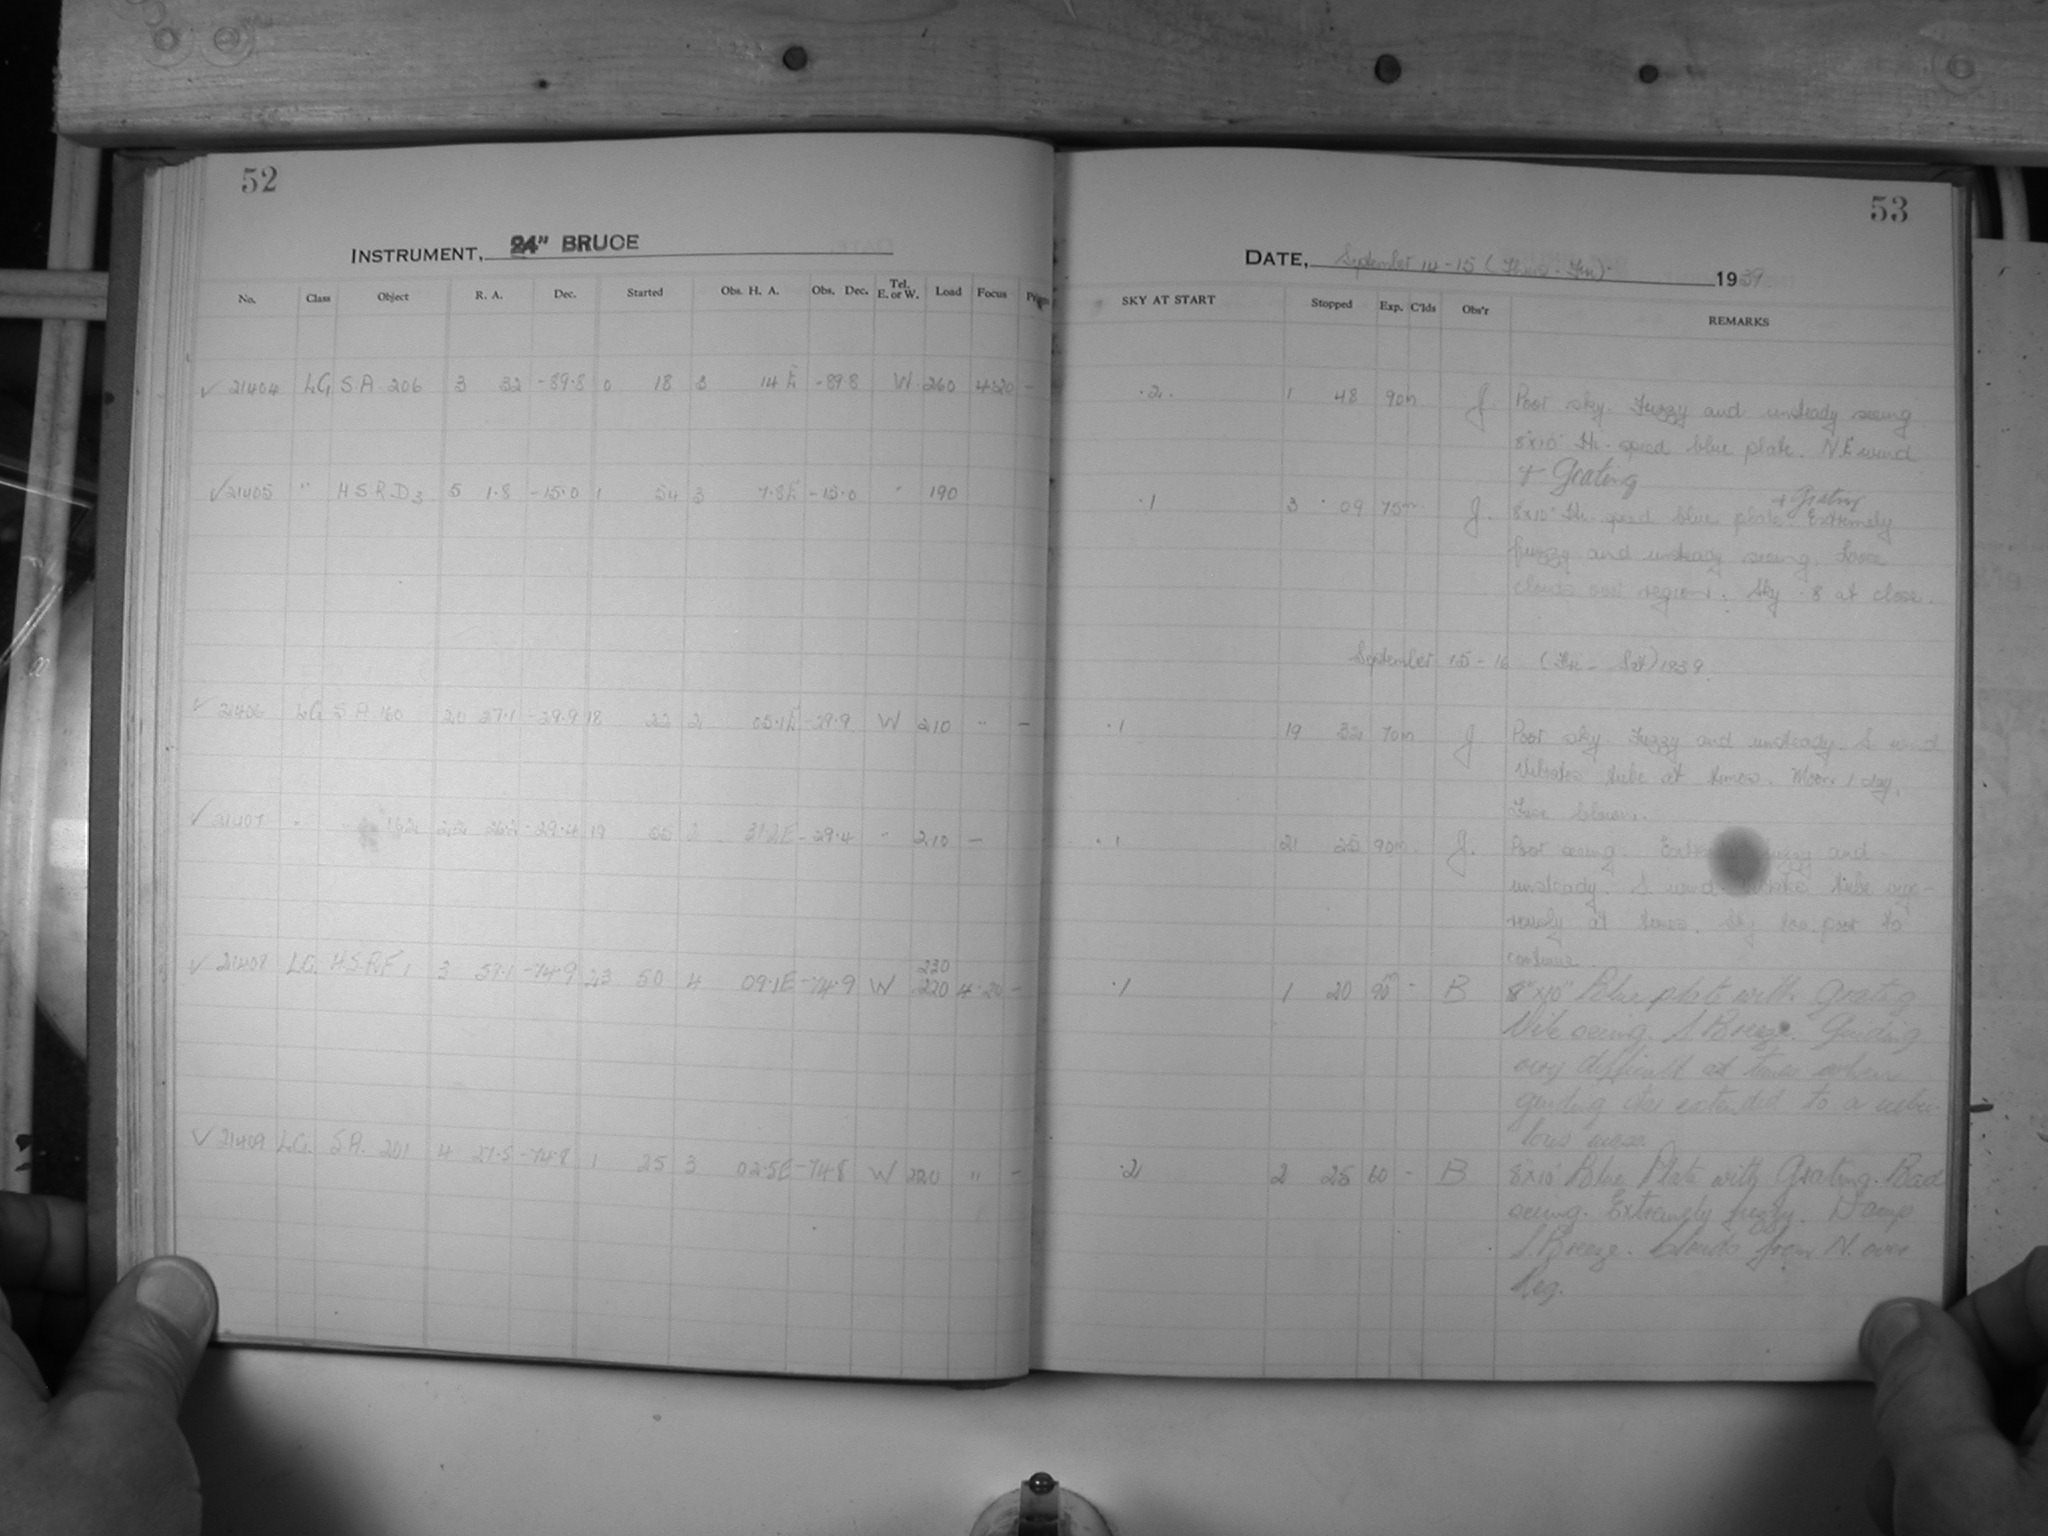 52
INSTRUMENT, 24" BRUCE
No. Class Object R. A. Dec. Started Obs. H. A. Obs. Dec. Tel. E. or W. Load Focus
✓ 21404 LG S.A. 206 3 32 -89.8 0 18 3 14 E -89.8 W 260 4.20 -
✓ 21405 " H.S.R.D 3 5 1.8 -15.0 1 54 3 7.8E -15.0 " 190
✓ 21406 LG S.A. 160 20 27.1 -29.9 18 22 2 05.1E -29.9 W 210 " -
✓ 21407 " " 162 22 26.2 -29.4 19 55 2 31.2E -29.4 " 210 -
230
✓ 21408 LG. H.S.R.F 1 3 59.1 -74.9 23 50 4 09.1E -74.9 W 220 4.20 -
✓ 21409 LG. S.A. 201 4 27.5 -74.8 1 25 3 02.5E -74.8 W 220 " -
53
DATE, September 14-15 (Thurs - Fri) 1939
SKY AT START Stopped Exp. C'lds Obs'r REMARKS
.2 1 48 90m J. Poor sky. Fuzzy and unsteady seeing
8"x10" Hi-speed blue plate. N.E wind
+ Grating
+ Grating
.1 3 09 75m J. 8x10" Hi-speed blue plate Extremely
fuzzy and unsteady seeing. Loose
clouds over region. Sky .8 at close.
September 15-16 (Fri - Sat) 1939
.1 19 32 70m J Poor sky. Fuzzy and unsteady. S wind
vibrates tube at times. Moon 1 day.
Fuse blown.
.1 21 25 90m J. Poor seeing. fuzzy and
unsteady. S wind tube vigo-
rously at times. Sky too poor to
continue.
.1 1 20 90 - B 8"x10" Blue plate with Grating
Vile seeing. S. Breeze. Guiding
very difficult at times when
guiding star extended to a nebu-
lous mass
.2 2 25 60 - B 8x10" Blue Plate with Grating. Bad
seeing. Extremely fuzzy. Damp
S. Breeze. Clouds from N. over
Reg.